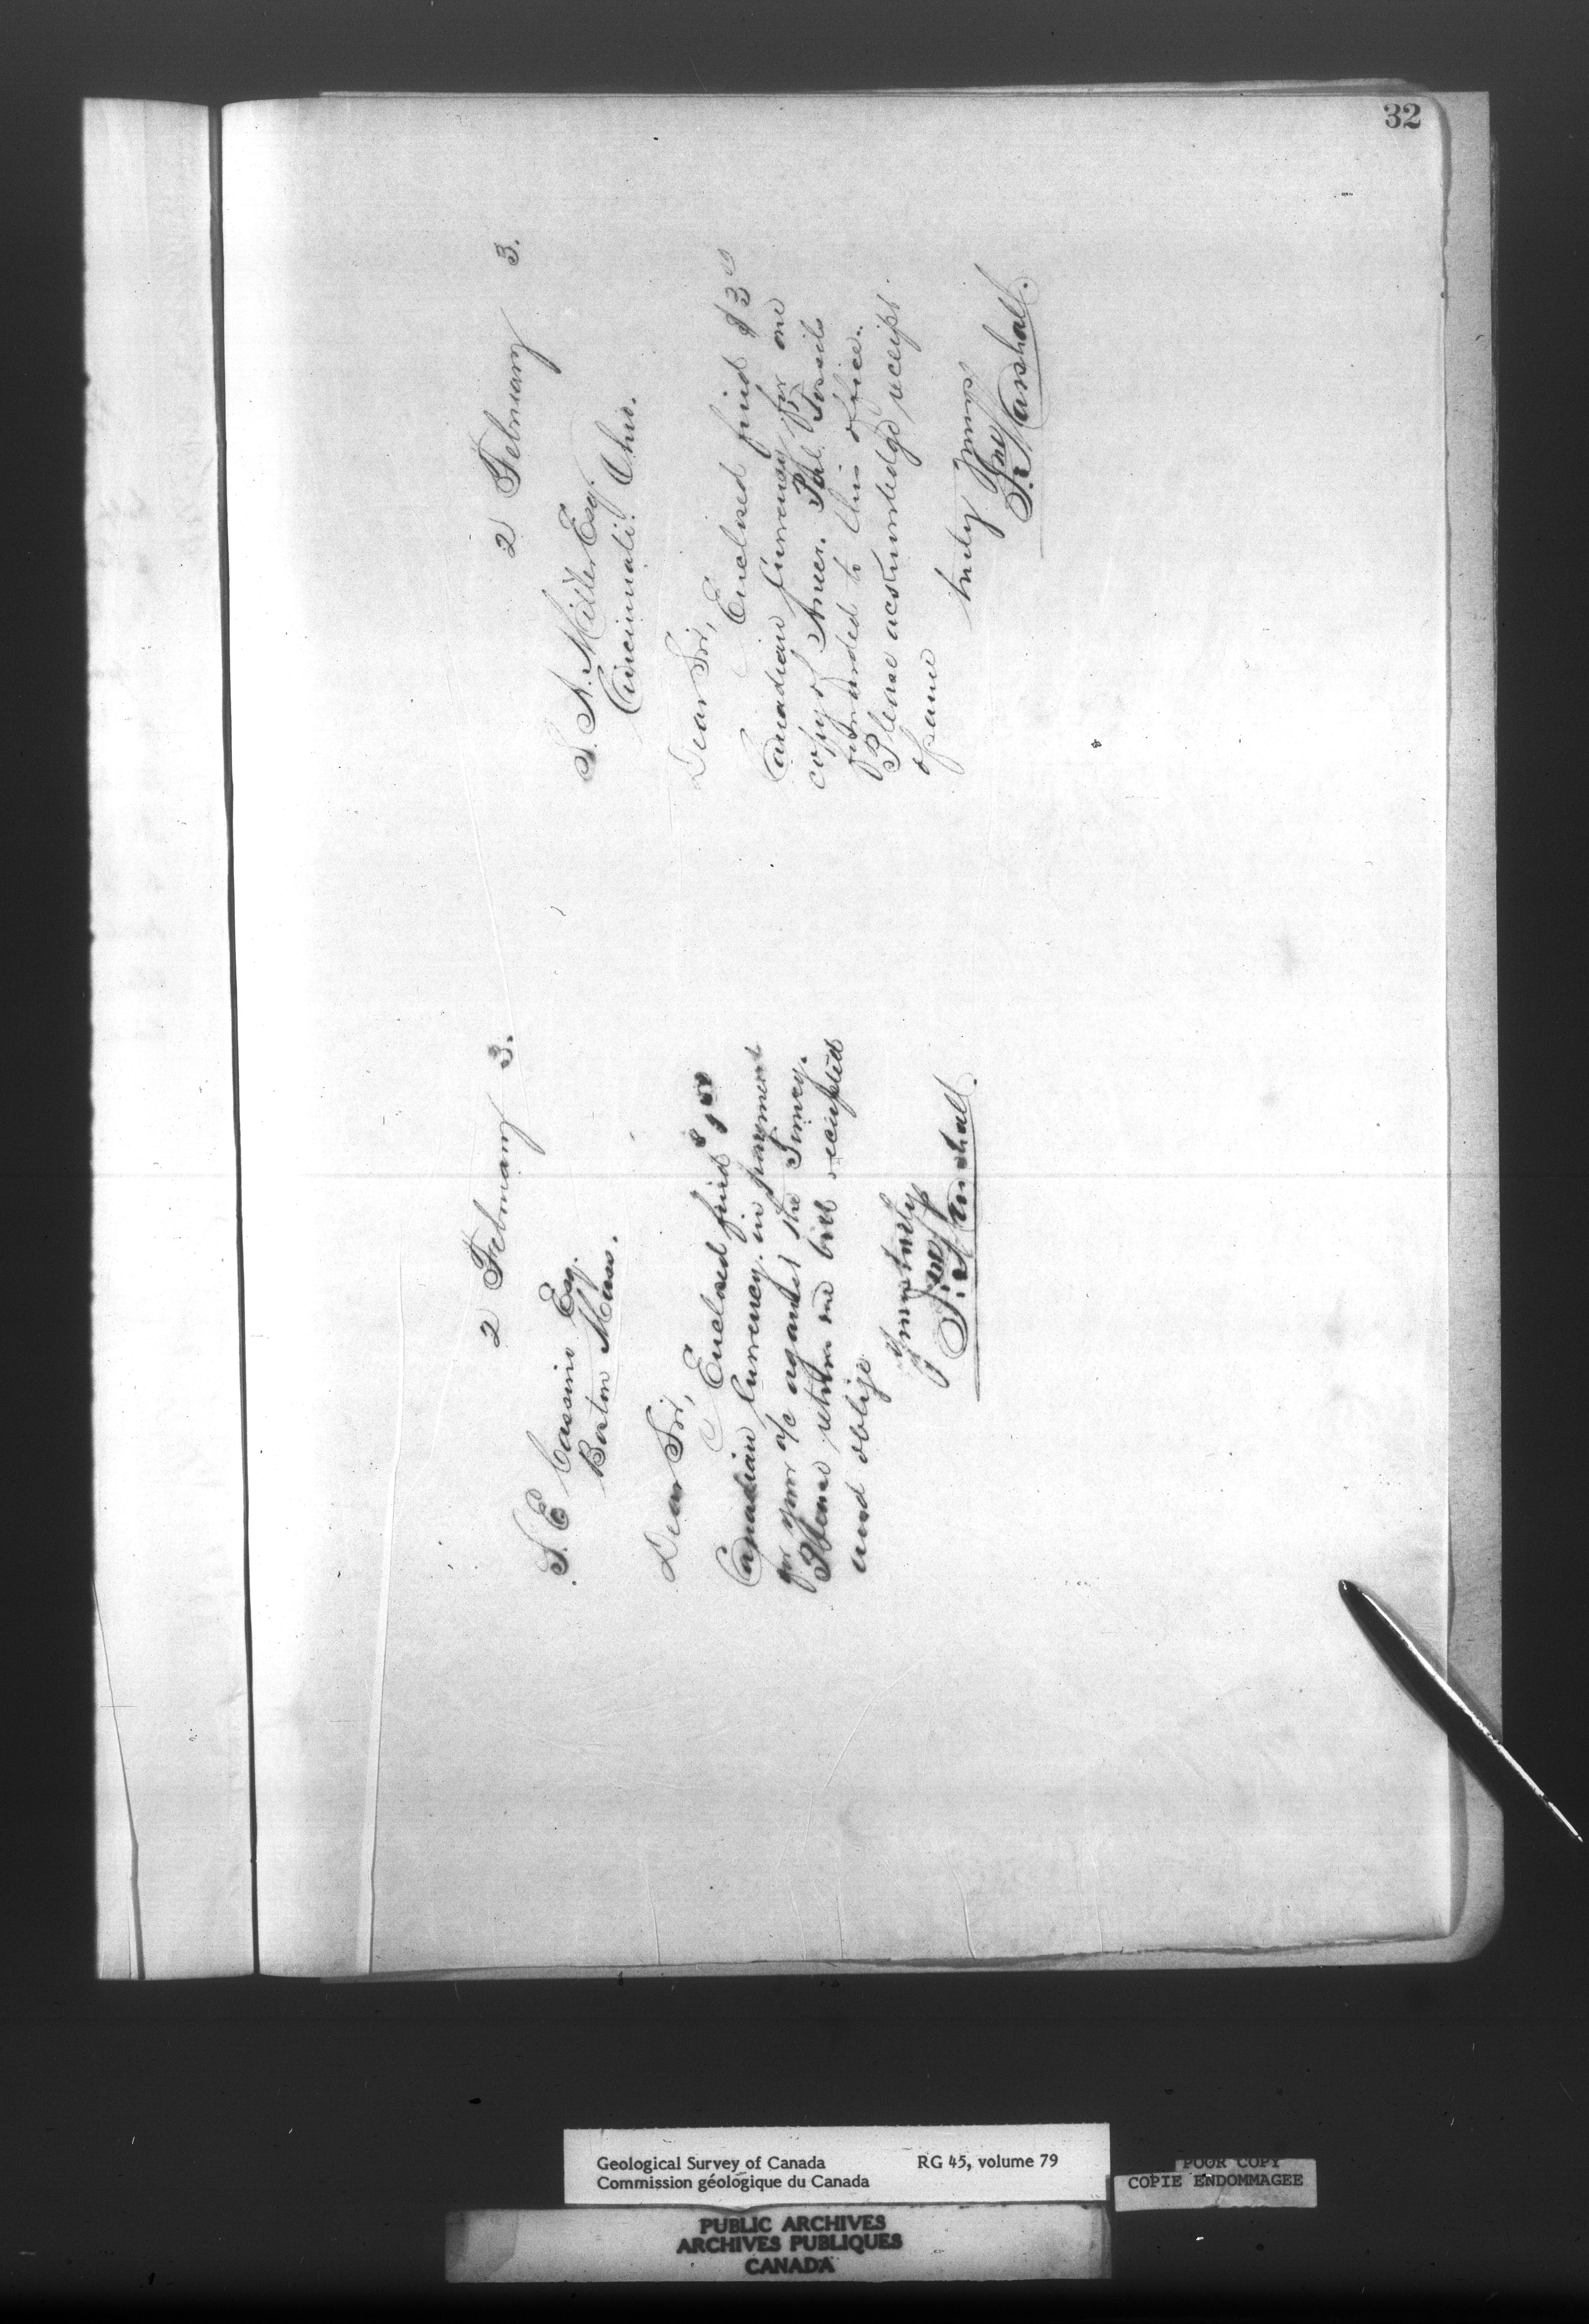 32
2 February 3.
S. E. Cassino Esq.
Boston Mass.
Dear Sir,
Enclosed find
Canadian Currency in payment
for your a/c against the Survey.
Please return me bill receipted
and oblige
Yours truly
Jno Marshall.
2 February 3.
S. A. Miller Esq.
Cincinnati. Ohio.
Dear Sir,
Enclosed find $3
Canadian Currency for one
copy of Amer. Pal. Fossils
forwarded to this office.
Please acknowledge receipt
of same
truly yours
Jno Marshall.
Geological Survey of Canada RG 45, volume 79
Commission géologique du Canada
POOR COPY
COPIE ENDOMMAGEE
PUBLIC ARCHIVES
ARCHIVES PUBLIQUES
CANADA